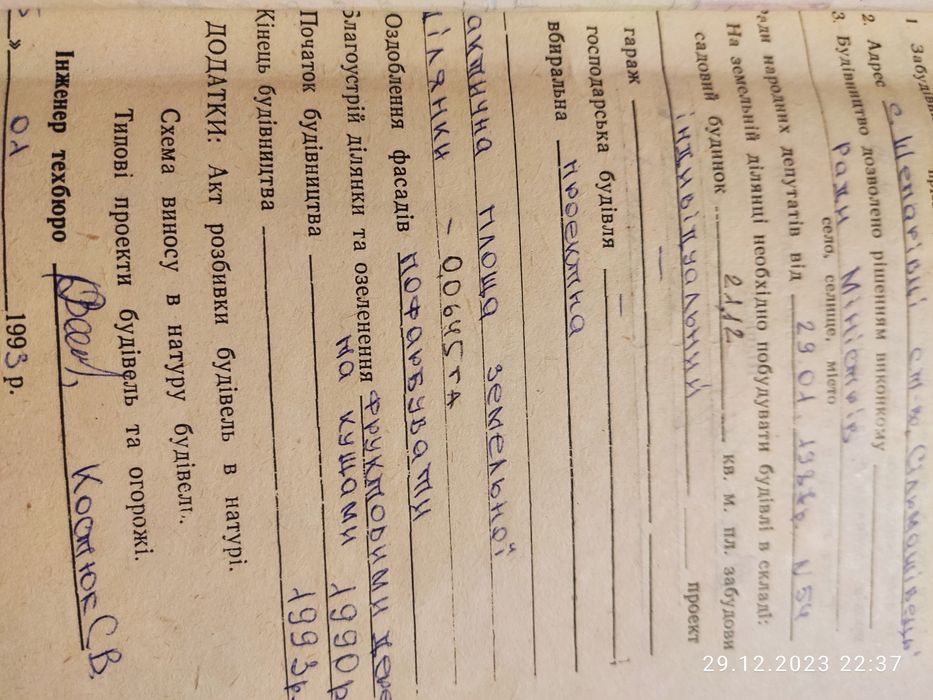 1 Забудівн
2. Адрес с. Шепарівці ст-во "Сільмашівець"
3. Будівництво дозволено рішенням виконкому
ради Міністрів
село, селище, місто
ади народних депутатів від 29 01. 1988р. N 54
На земельній ділянці необхідно побудувати будівлі в складі:
садовий будинок 21,12 кв. м. пл. забудови
індивідуальний проект
гараж —
господарська будівля —
вбиральна проектна
актична площа земельної
ілянки - 0.0645 га
Оздоблення фасадів пофарбувати
благоустрій ділянки та озеленення фруктовими дере
на кущами
Початок будівництва 1990р
Кінець будівництва 1993р
ДОДАТКИ: Акт розбивки будівель в натурі.
Схема виносу в натуру будівель.
Типові проекти будівель та огорожі.
Інженер техбюро Костюк С.В.
» 01 1993 р.
29.12.2023 22:37